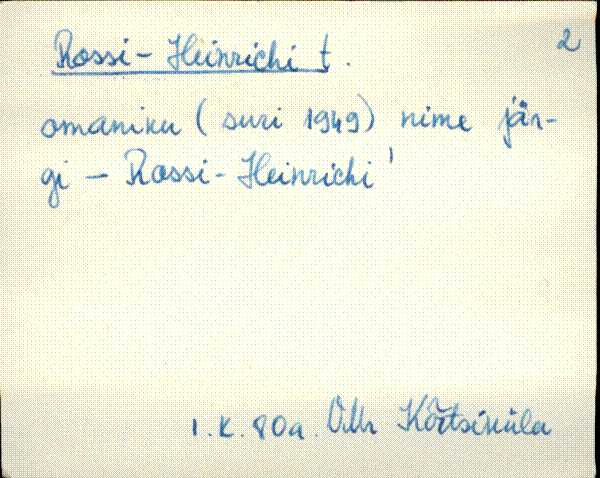 2
Rossi-Heinrichi t.
omaniku (suri 1949) nime jär-
gi - Rossi-Heinrichi'
1.k. 80a. VMr Kõrtsiküla